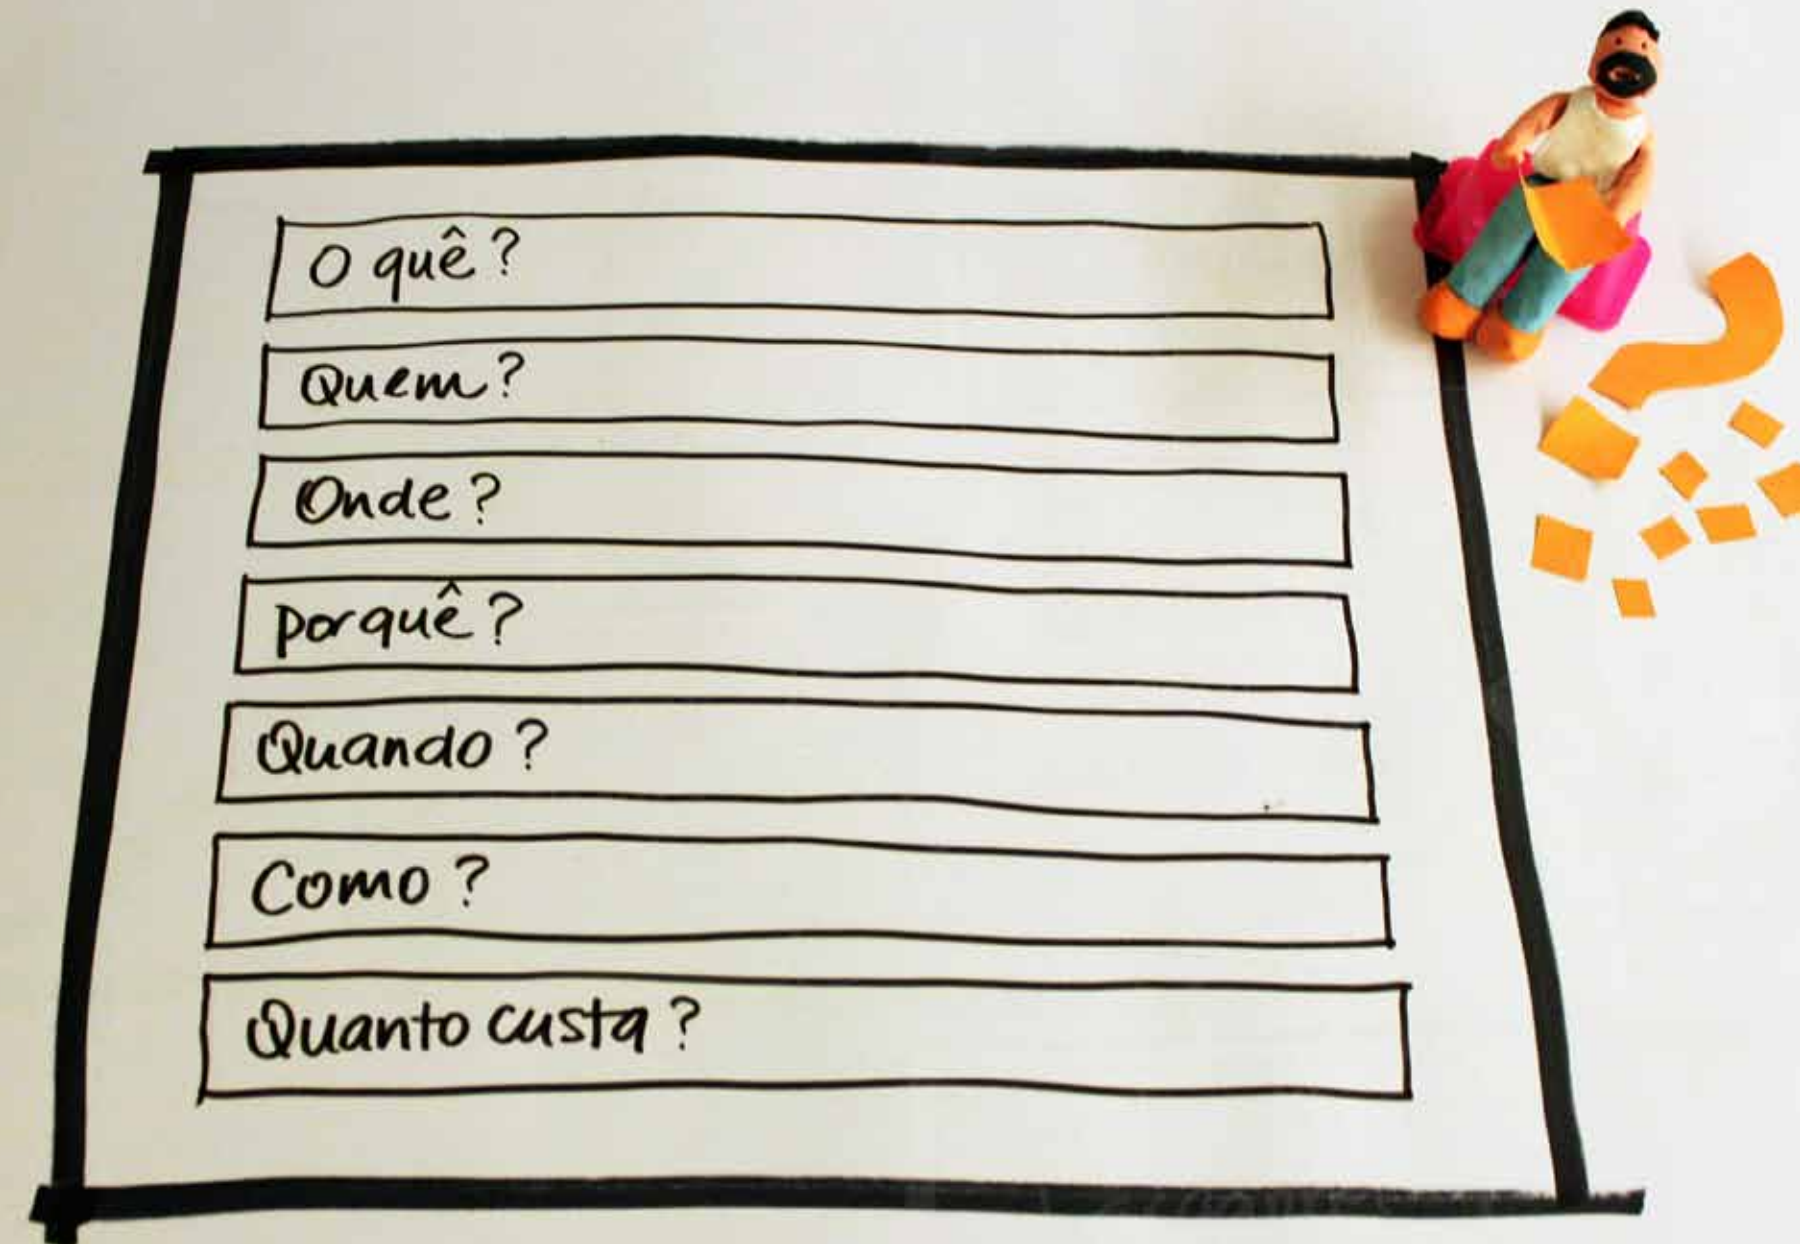 O quê?
Quem?
Onde?
Porquê?
Quando?
Como?
Quanto custa?